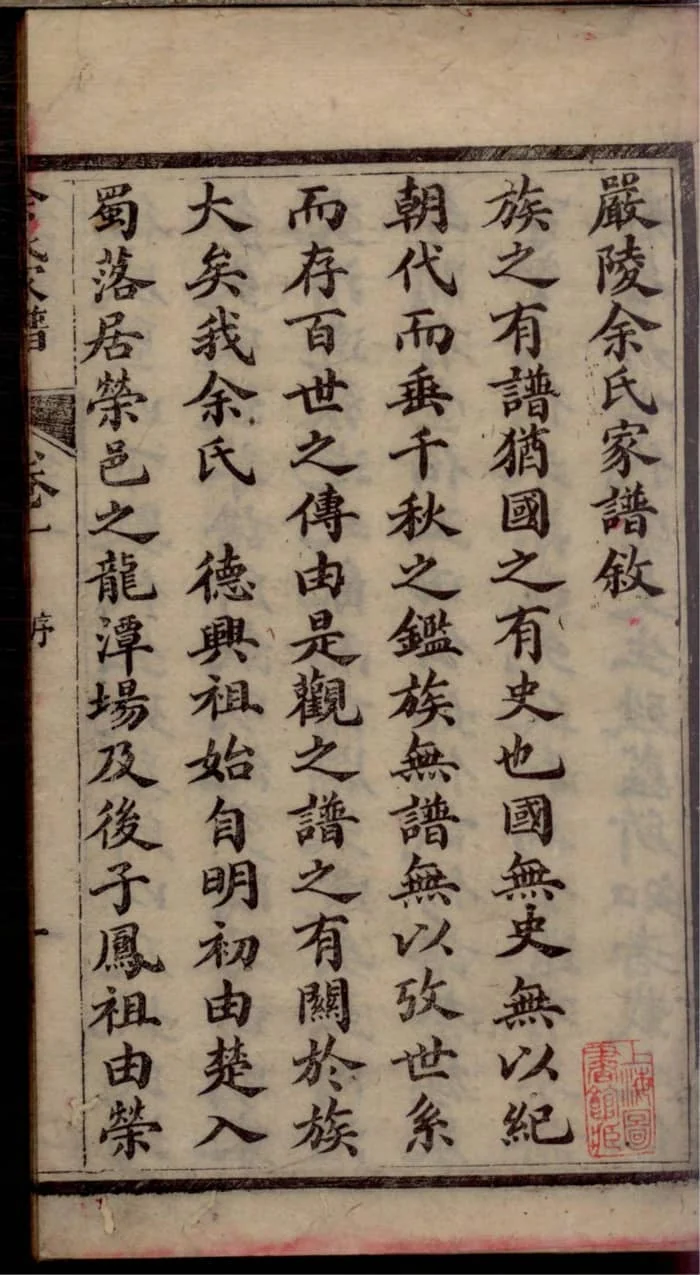 嚴陵余氏家譜敘
族之有譜猶國之有史也國無史無以紀
朝代而垂千秋之鑑族無譜無以攷世系
而存百世之傳由是觀之譜之有關於族
大矣我余氏　德興祖始自明初由楚入
蜀落居榮邑之龍潭場及後子鳳祖由榮
余氏家譜　卷一　序　一
上海圖
書館藏